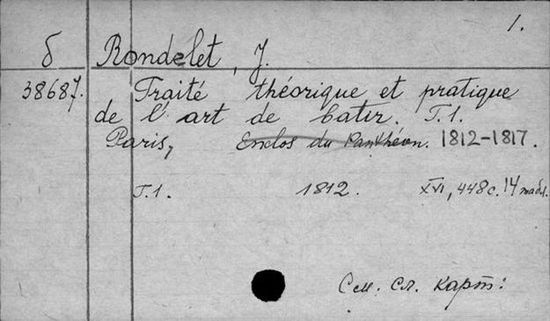 1.
б Rondelet, J.
38687. Traité théorique et pratique
de l'art de batir. T.1.
Paris, Enclos du Panthéon. 1812-1817.
T.1. 1812. XVI, 448c. 14 табл.
См. сл. карт: